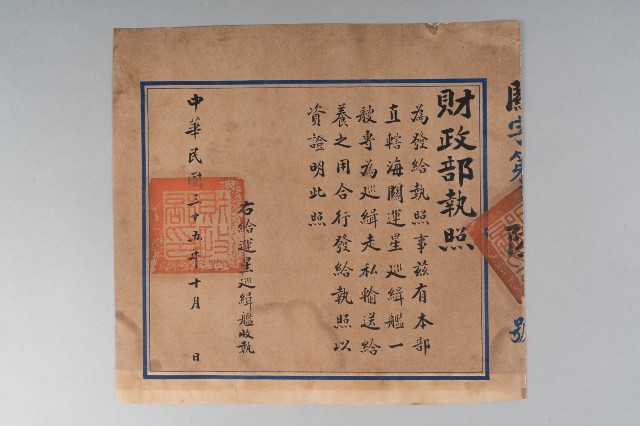 關字第
號
財政部執照
為發給執照事兹有本部
直轄海關運星巡緝艦一
艘專為巡緝走私輸送給
養之用合行發給執照以
資證明此照
右給運星巡緝艦收執
中華民國三十五年十月 日